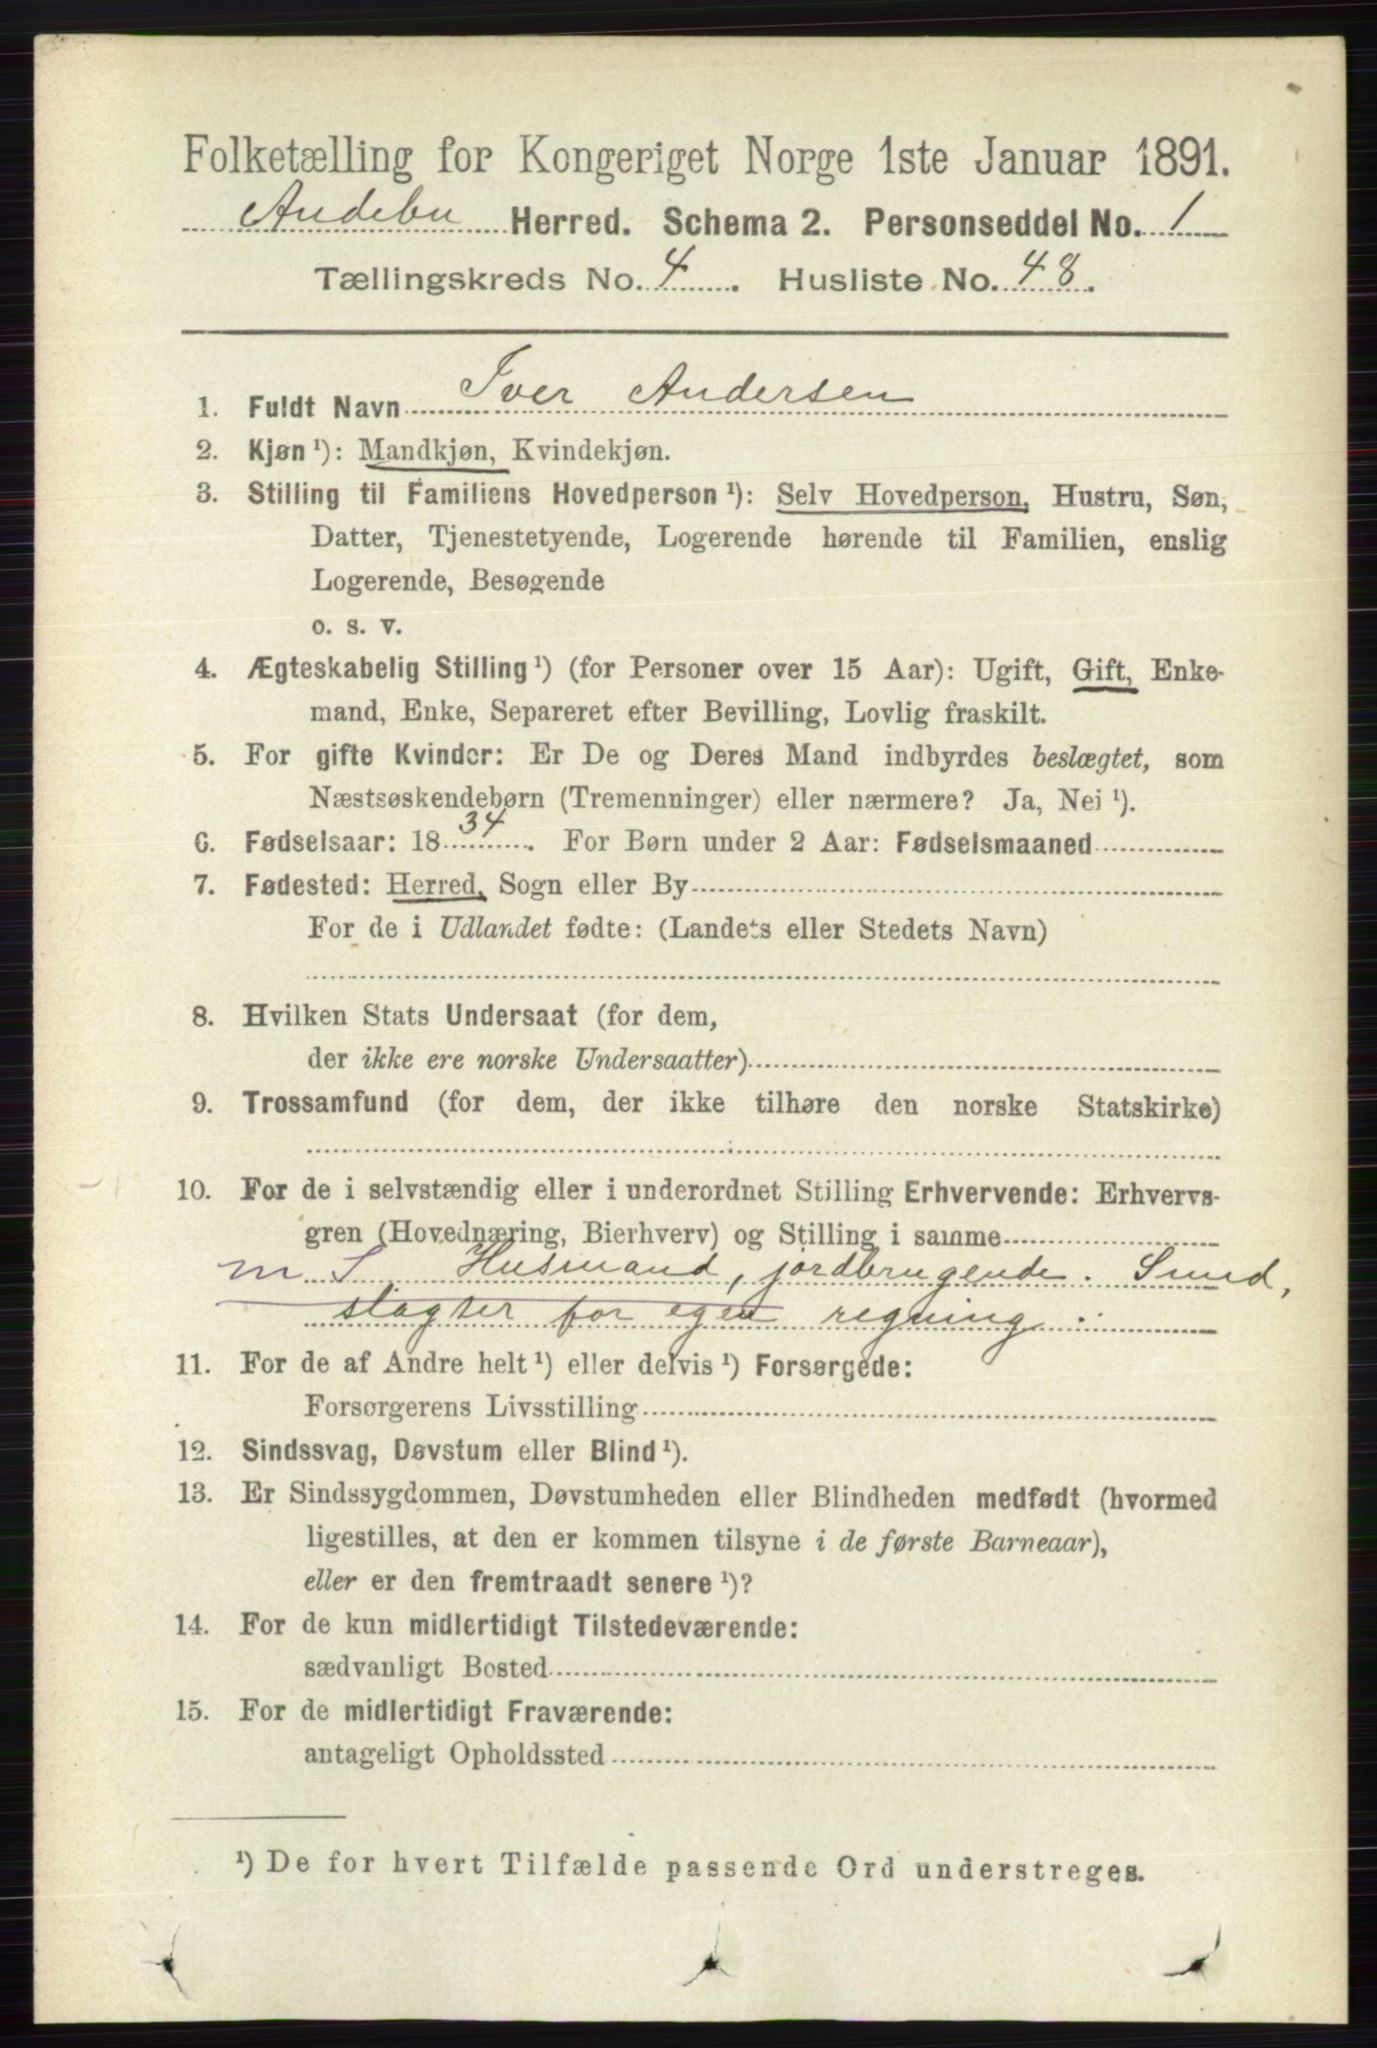 Folketælling for Kongeriget Norge 1ste Januar 1891.
Andebu Herred. Schema 2. Personseddel No. 1
Tællingskreds No. 4. Husliste No. 48.
1. Fuldt Navn Iver Andersen
2. Kjøn ¹): Mandkjøn, Kvindekjøn.
3. Stilling til Familiens Hovedperson ¹): Selv Hovedperson, Hustru, Søn,
Datter, Tjenestetyende, Logerende hørende til Familien, enslig
Logerende, Besøgende
o. s. v.
4. Ægteskabelig Stilling ¹) (for Personer over 15 Aar): Ugift, Gift, Enke-
mand, Enke, Separeret efter Bevilling, Lovlig fraskilt.
5. For gifte Kvinder: Er De og Deres Mand indbyrdes beslægtet, som
Næstsøskendebørn (Tremenninger) eller nærmere? Ja, Nei ¹).
6. Fødselsaar: 1834. For Børn under 2 Aar: Fødselsmaaned
7. Fødested: Herred, Sogn eller By
For de i Udlandet fødte: (Landets eller Stedets Navn)
8. Hvilken Stats Undersaat (for dem,
der ikke ere norske Undersaatter)
9. Trossamfund (for dem, der ikke tilhøre den norske Statskirke)
10. For de i selvstændig eller i underordnet Stilling Erhvervende: Erhvervs-
gren (Hovednæring, Bierhverv) og Stilling i samme
m S Husmand, jordbrugende. Smed,
slagter for egen regning.
11. For de af Andre helt ¹) eller delvis ¹) Forsørgede:
Forsørgerens Livsstilling
12. Sindssvag, Døvstum eller Blind ¹).
13. Er Sindssygdommen, Døvstumheden eller Blindheden medfødt (hvormed
ligestilles, at den er kommen tilsyne i de første Barneaar),
eller er den fremtraadt senere ¹)?
14. For de kun midlertidigt Tilstedeværende:
sædvanligt Bosted
15. For de midlertidigt Fraværende:
antageligt Opholdssted
¹) De for hvert Tilfælde passende Ord understreges.